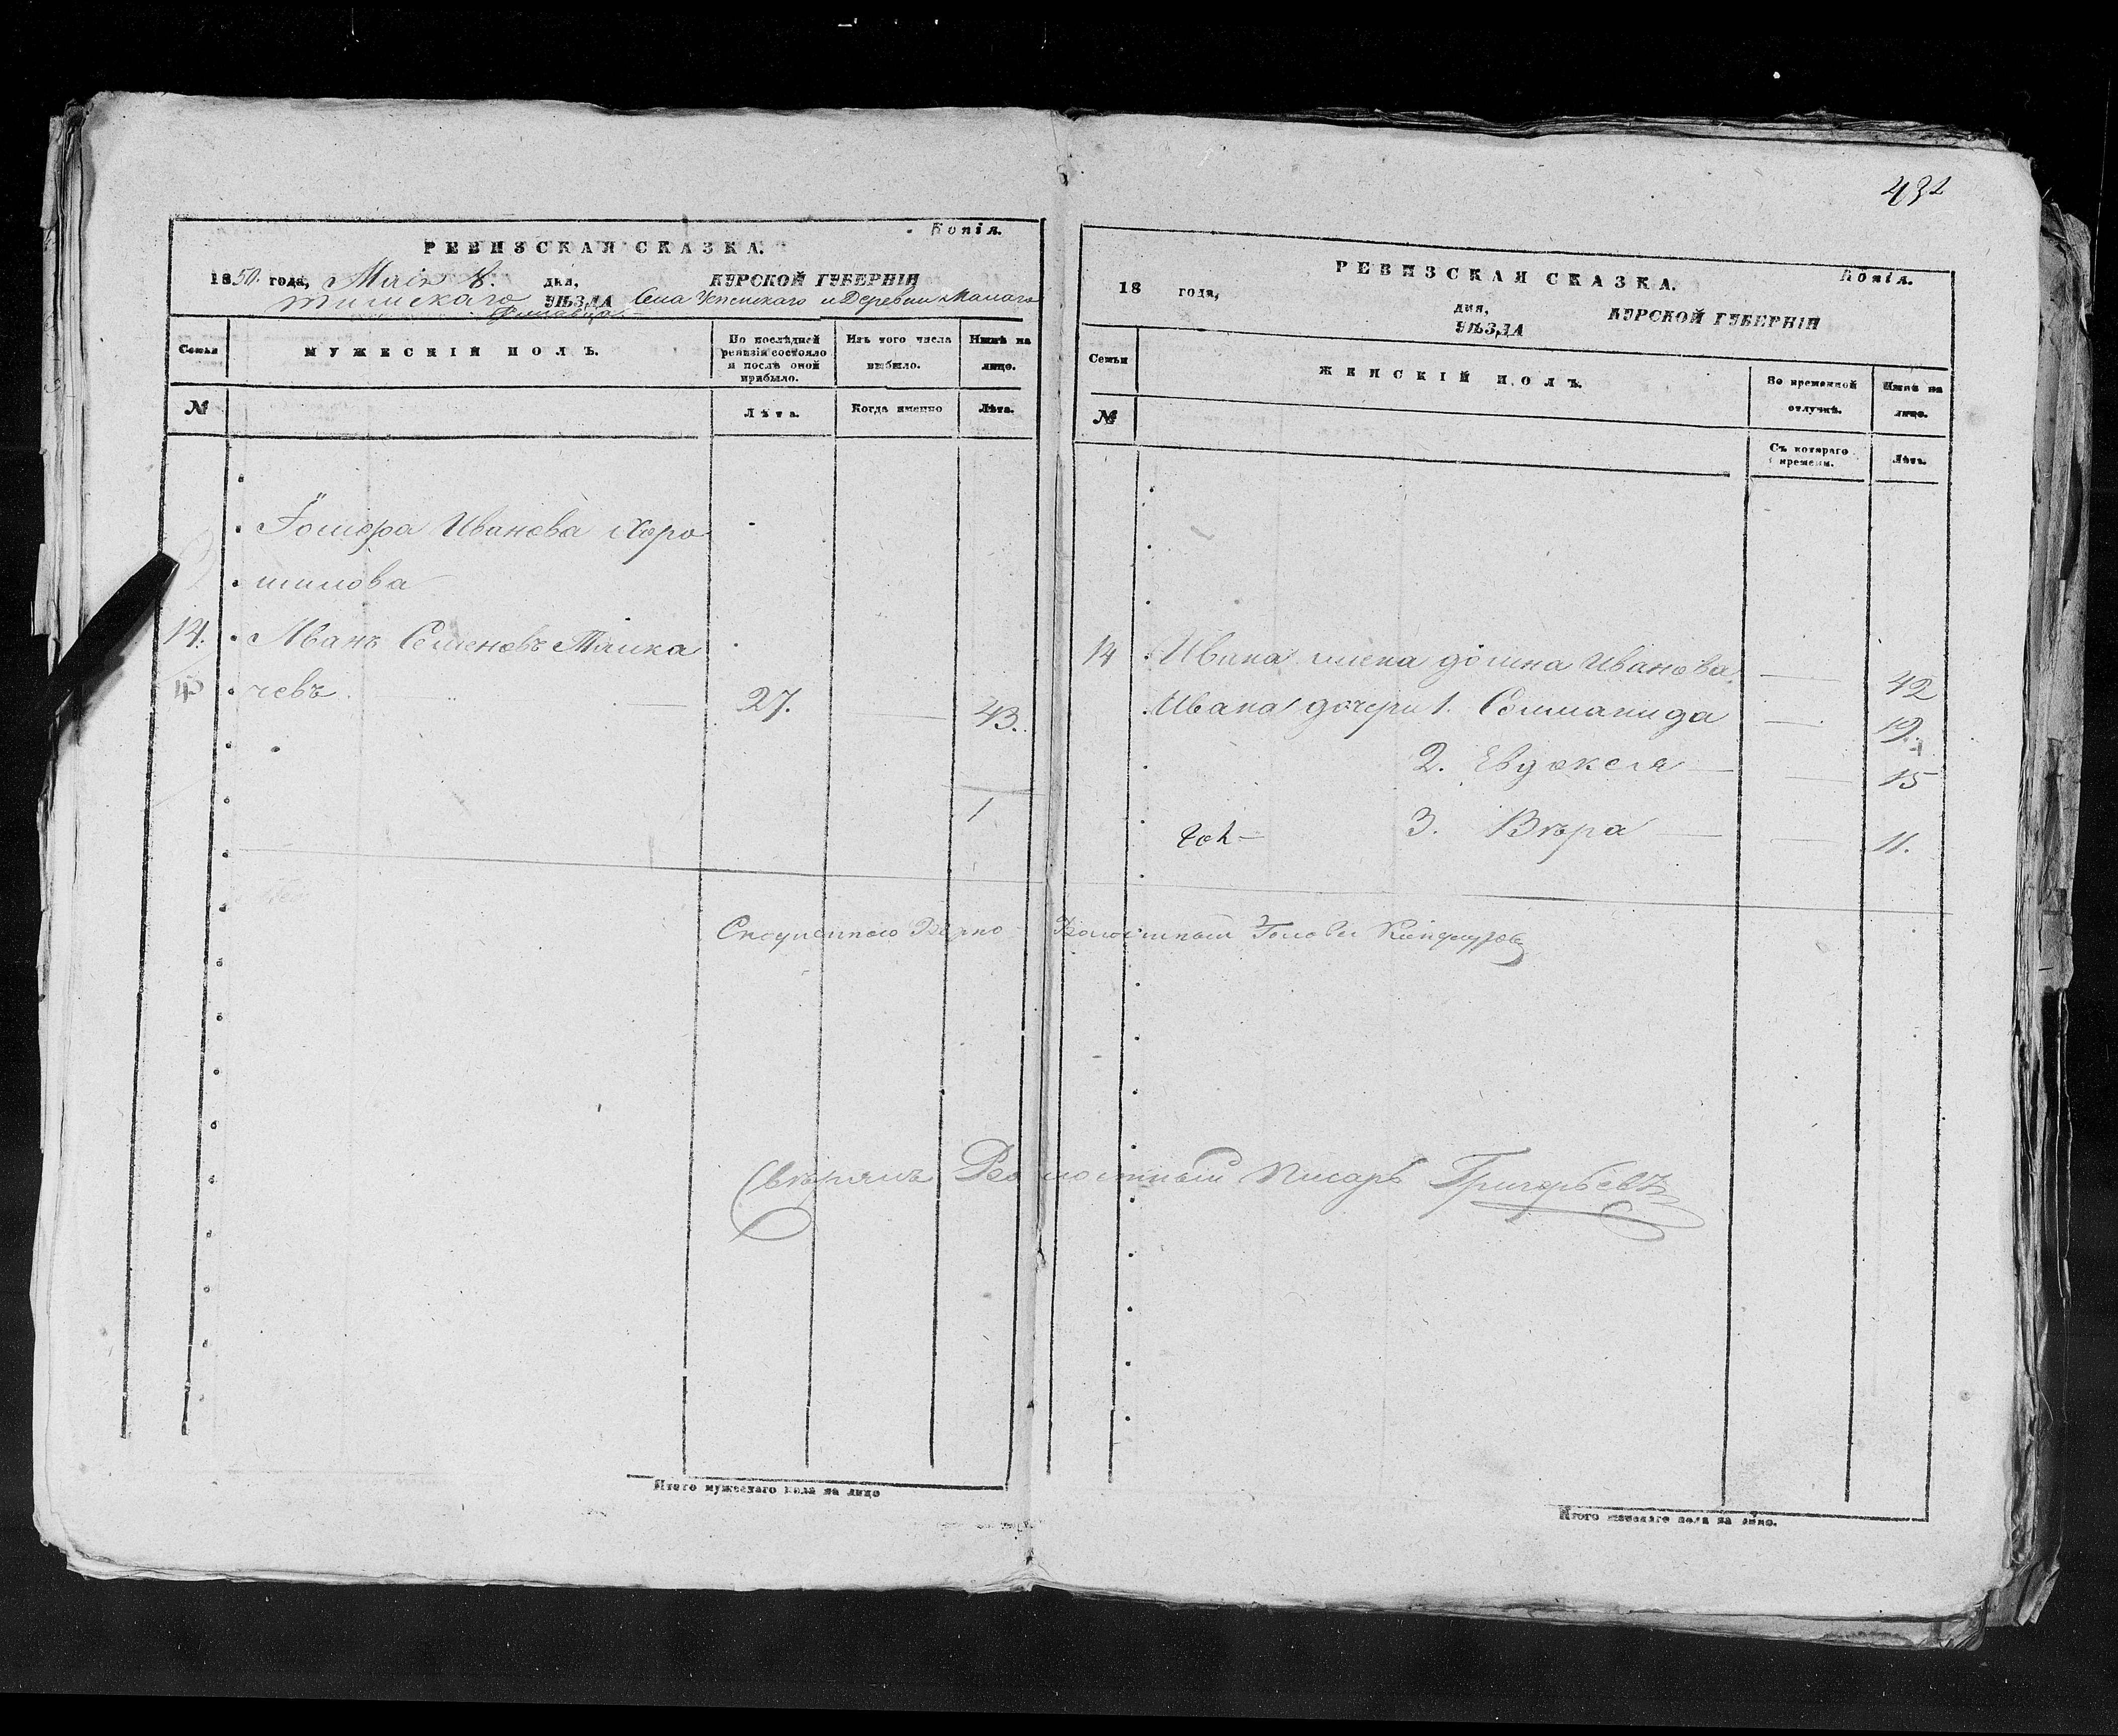 432
Копія.
РЕВИЗСКАЯ СКАЗКА.
1850. года, Маія 8. дня, КУРСКОЙ ГУБЕРНІИ
Тимскаго УѢЗДА Села Успенскаго и Деревни Малаго
Семьи
МУЖЕСКІЙ ПОЛЪ.
По послѣдней ревизіи состояло и послѣ оной прибыло.
Изъ того числа выбыло.
Нынѣ на лицо.
№
Лѣта.
Когда именно
Лѣта.
Ивановa Хоро
шилова
14. Иванъ Семеновъ Толка
чевъ 27. 43.
1
Волостной Голова
Свѣрялъ Волостный Писарь Григорьевъ
Итого мужескаго пола на лицо
Копія.
РЕВИЗСКАЯ СКАЗКА.
18 года,
дня, КУРСКОЙ ГУБЕРНІИ
УѢЗДА
Семьи
ЖЕНСКІЙ ПОЛЪ.
Во временной отлучкѣ.
Нынѣ на лицо.
№
Съ котораго времени.
Лѣта.
14 Ивана жена Домна Иванова 42
Ивана дочери 1. Соломанида 19.
2. Евдокея 15
3. Вѣра 11.
Итого женскаго пола на лицо.